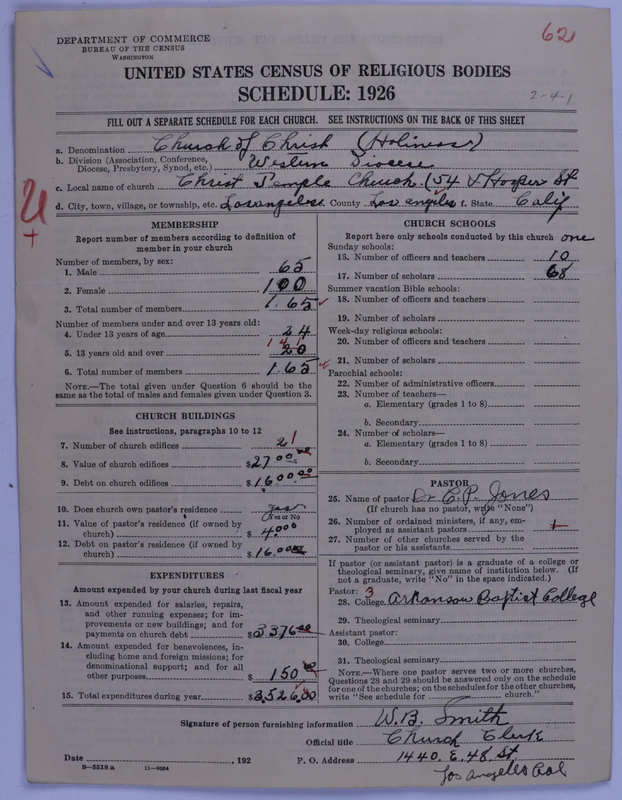 62
DEPARTMENT OF COMMERCE
BUREAU OF THE CENSUS
WASHINGTON
UNITED STATES CENSUS OF RELIGIOUS BODIES
SCHEDULE: 1926
2-4-1
FILL OUT A SEPARATE SCHEDULE FOR EACH CHURCH. SEE INSTRUCTIONS ON THE BACK OF THIS SHEET
a. Denomination Church of Christ (Holiness)
b. Division (Association, Conference,
Diocese, Presbytery, Synod, etc.) Western Diocese
c. Local name of church Christ Temple Church (54 & Hooper St
d. City, town, village, or township, etc. Losangeles. County Los angeles f. State Calif
MEMBERSHIP
Report number of members according to definition of
member in your church
Number of members, by sex:
1. Male 65
2. Female 100
3. Total number of members 165
Number of members under and over 13 years old:
4. Under 13 years of age 24
141
5. 13 years old and over 20
6. Total number of members 165
NOTE.—The total given under Question 6 should be the
same as the total of males and females given under Question 3.
CHURCH BUILDINGS
See instructions, paragraphs 10 to 12
7. Number of church edifices 2 1
8. Value of church edifices $2700
9. Debt on church edifices $1600
10. Does church own pastor's residence yes
(Yes or No
11. Value of pastor's residence (if owned by
church) $4000
12. Debt on pastor's residence (if owned by
church) $1600
EXPENDITURES
Amount expended by your church during last fiscal year
13. Amount expended for salaries, repairs,
and other running expenses; for im-
provements or new buildings; and for
payments on church debt $3376
14. Amount expended for benevolences, in-
cluding home and foreign missions; for
denominational support; and for all
other purposes $150
15. Total expenditures during year $3,526.00
CHURCH SCHOOLS
Report here only schools conducted by this church one
Sunday schools:
16. Number of officers and teachers 10
17. Number of scholars 68
Summer vacation Bible schools:
18. Number of officers and teachers
19. Number of scholars
Week-day religious schools:
20. Number of officers and teachers
21. Number of scholars
Parochial schools:
22. Number of administrative officers
23. Number of teachers—
a. Elementary (grades 1 to 8)
b. Secondary
24. Number of scholars—
a. Elementary (grades 1 to 8)
b. Secondary
PASTOR
25. Name of pastor Dr C.P. Jones
(If church has no pastor, write "None")
26. Number of ordained ministers, if any, em-
ployed as assistant pastors 1
27. Number of other churches served by the
pastor or his assistants
If pastor (or assistant pastor) is a graduate of a college or
theological seminary, give name of institution below. (If
not a graduate, write "No" in the space indicated.)
Pastor: 3
28. College Arkansaw Baptist College
29. Theological seminary
Assistant pastor:
30. College
31. Theological seminary
NOTE.—Where one pastor serves two or more churches,
Questions 28 and 29 should be answered only on the schedule
for one of the churches; on the schedules for the other churches,
write "See schedule for church."
Signature of person furnishing information W.B. Smith
Official title Church Clerk
Date , 192 P. O. Address 1440. E. 48 St
Los Angeles Cal
8-5318a 11-9054